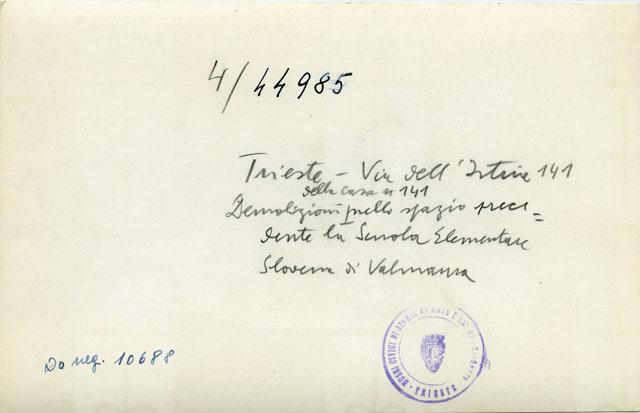 4/44985
Trieste - Via dell'Istria 141
della casa n 141
Demolizioni nello spazio prece=
dente la Scuola Elementare
Slovena di Valmaura
Da neg. 10688
MUSEI CIVICI DI STORIA ED ARTE
TRIESTE